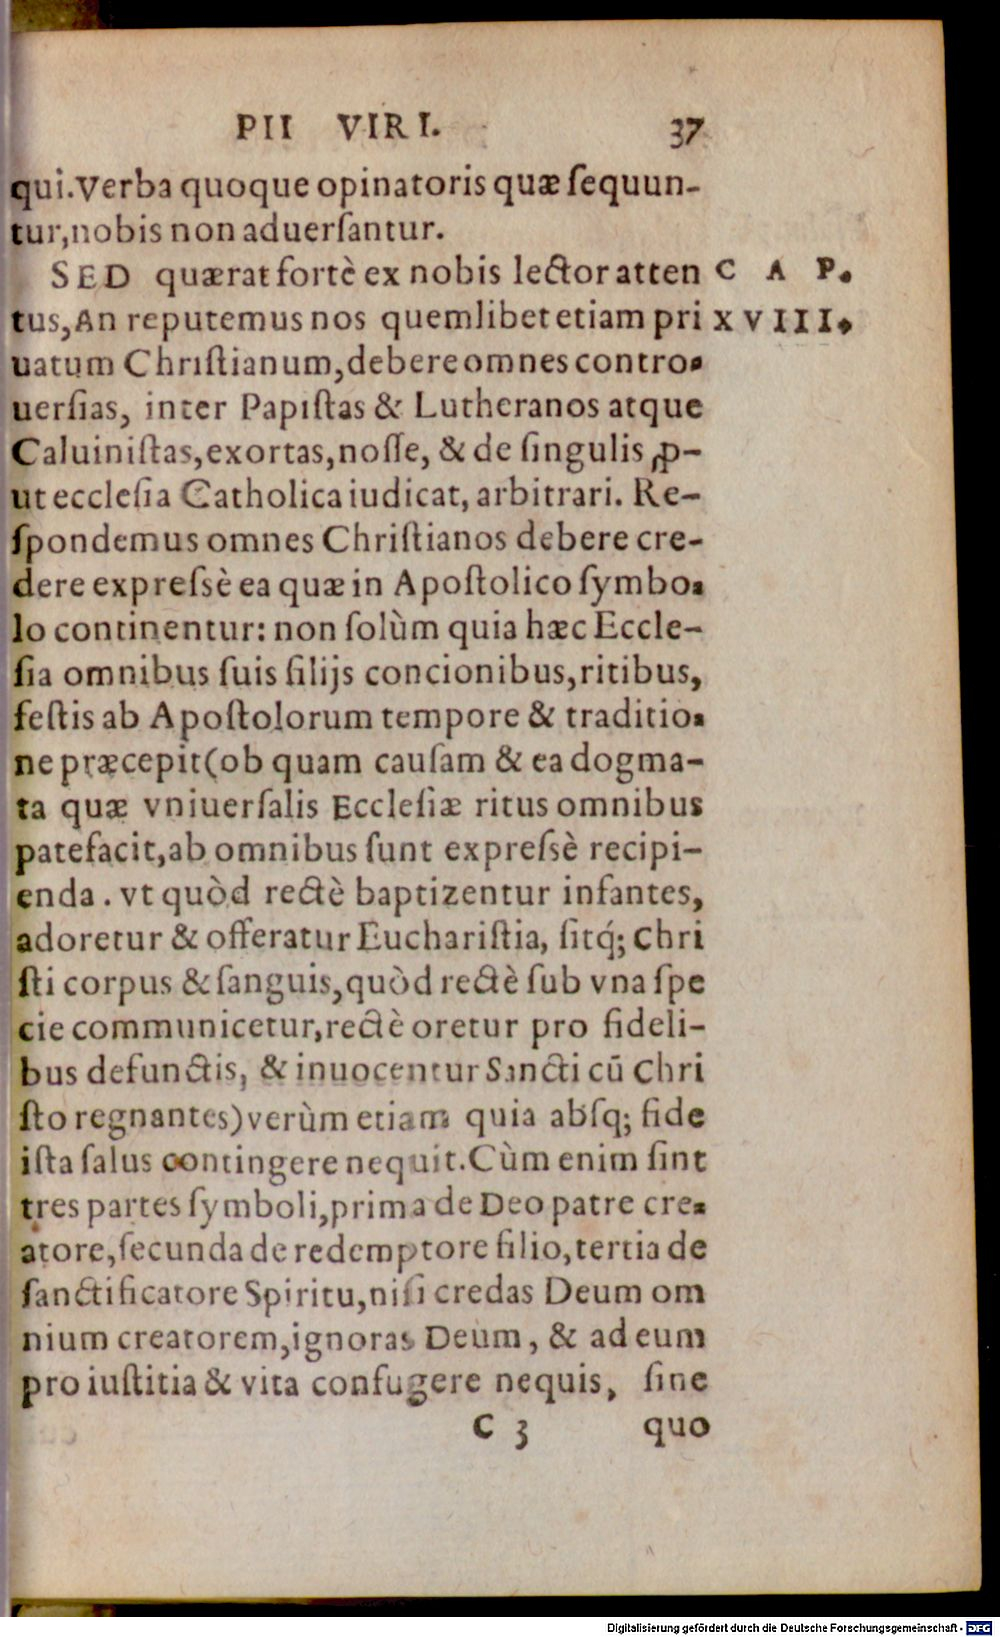 PII VIRI. 37
qui. Verba quoque opinatoris quæ ſequun-
tur, nobis non aduerſantur.
SED quærat fortè ex nobis lector atten
CAP.
tus, An reputemus nos quemlibet etiam pri
XVIII.
uatum Chriſtianum, debere omnes contro-
uerſias, inter Papiſtas & Lutheranos atque
Caluiniſtas, exortas, noſſe, & de ſingulis ꝓ-
ut eccleſia Catholica iudicat, arbitrari. Re-
ſpondemus omnes Chriſtianos debere cre-
dere expreſsè ea quæ in Apoſtolico ſymbo-
lo continentur: non ſolùm quia hæc Eccle-
ſia omnibus ſuis filijs concionibus, ritibus,
feſtis ab Apoſtolorum tempore & traditio-
ne præcepit (ob quam cauſam & ea dogma-
ta quæ vniuerſalis Eccleſiæ ritus omnibus
patefacit, ab omnibus ſunt expreſsè recipi-
enda. vt quòd rectè baptizentur infantes,
adoretur & offeratur Euchariſtia, ſitq́; Chri
ſti corpus & ſanguis, quòd rectè ſub vna ſpe
cie communicetur, rectè oretur pro fideli-
bus defunctis, & inuocentur Sancti cū Chri
ſto regnantes) verùm etiam quia abſq; fide
iſta ſalus contingere nequit. Cùm enim ſint
tres partes ſymboli, prima de Deo patre cre-
atore, ſecunda de redemptore filio, tertia de
ſanctificatore Spiritu, niſi credas Deum om
nium creatorem, ignoras Deum, & ad eum
pro iuſtitia & vita confugere nequis, ſine
C 3 quo
Digitalisierung gefördert durch die Deutsche Forschungsgemeinschaft - DFG